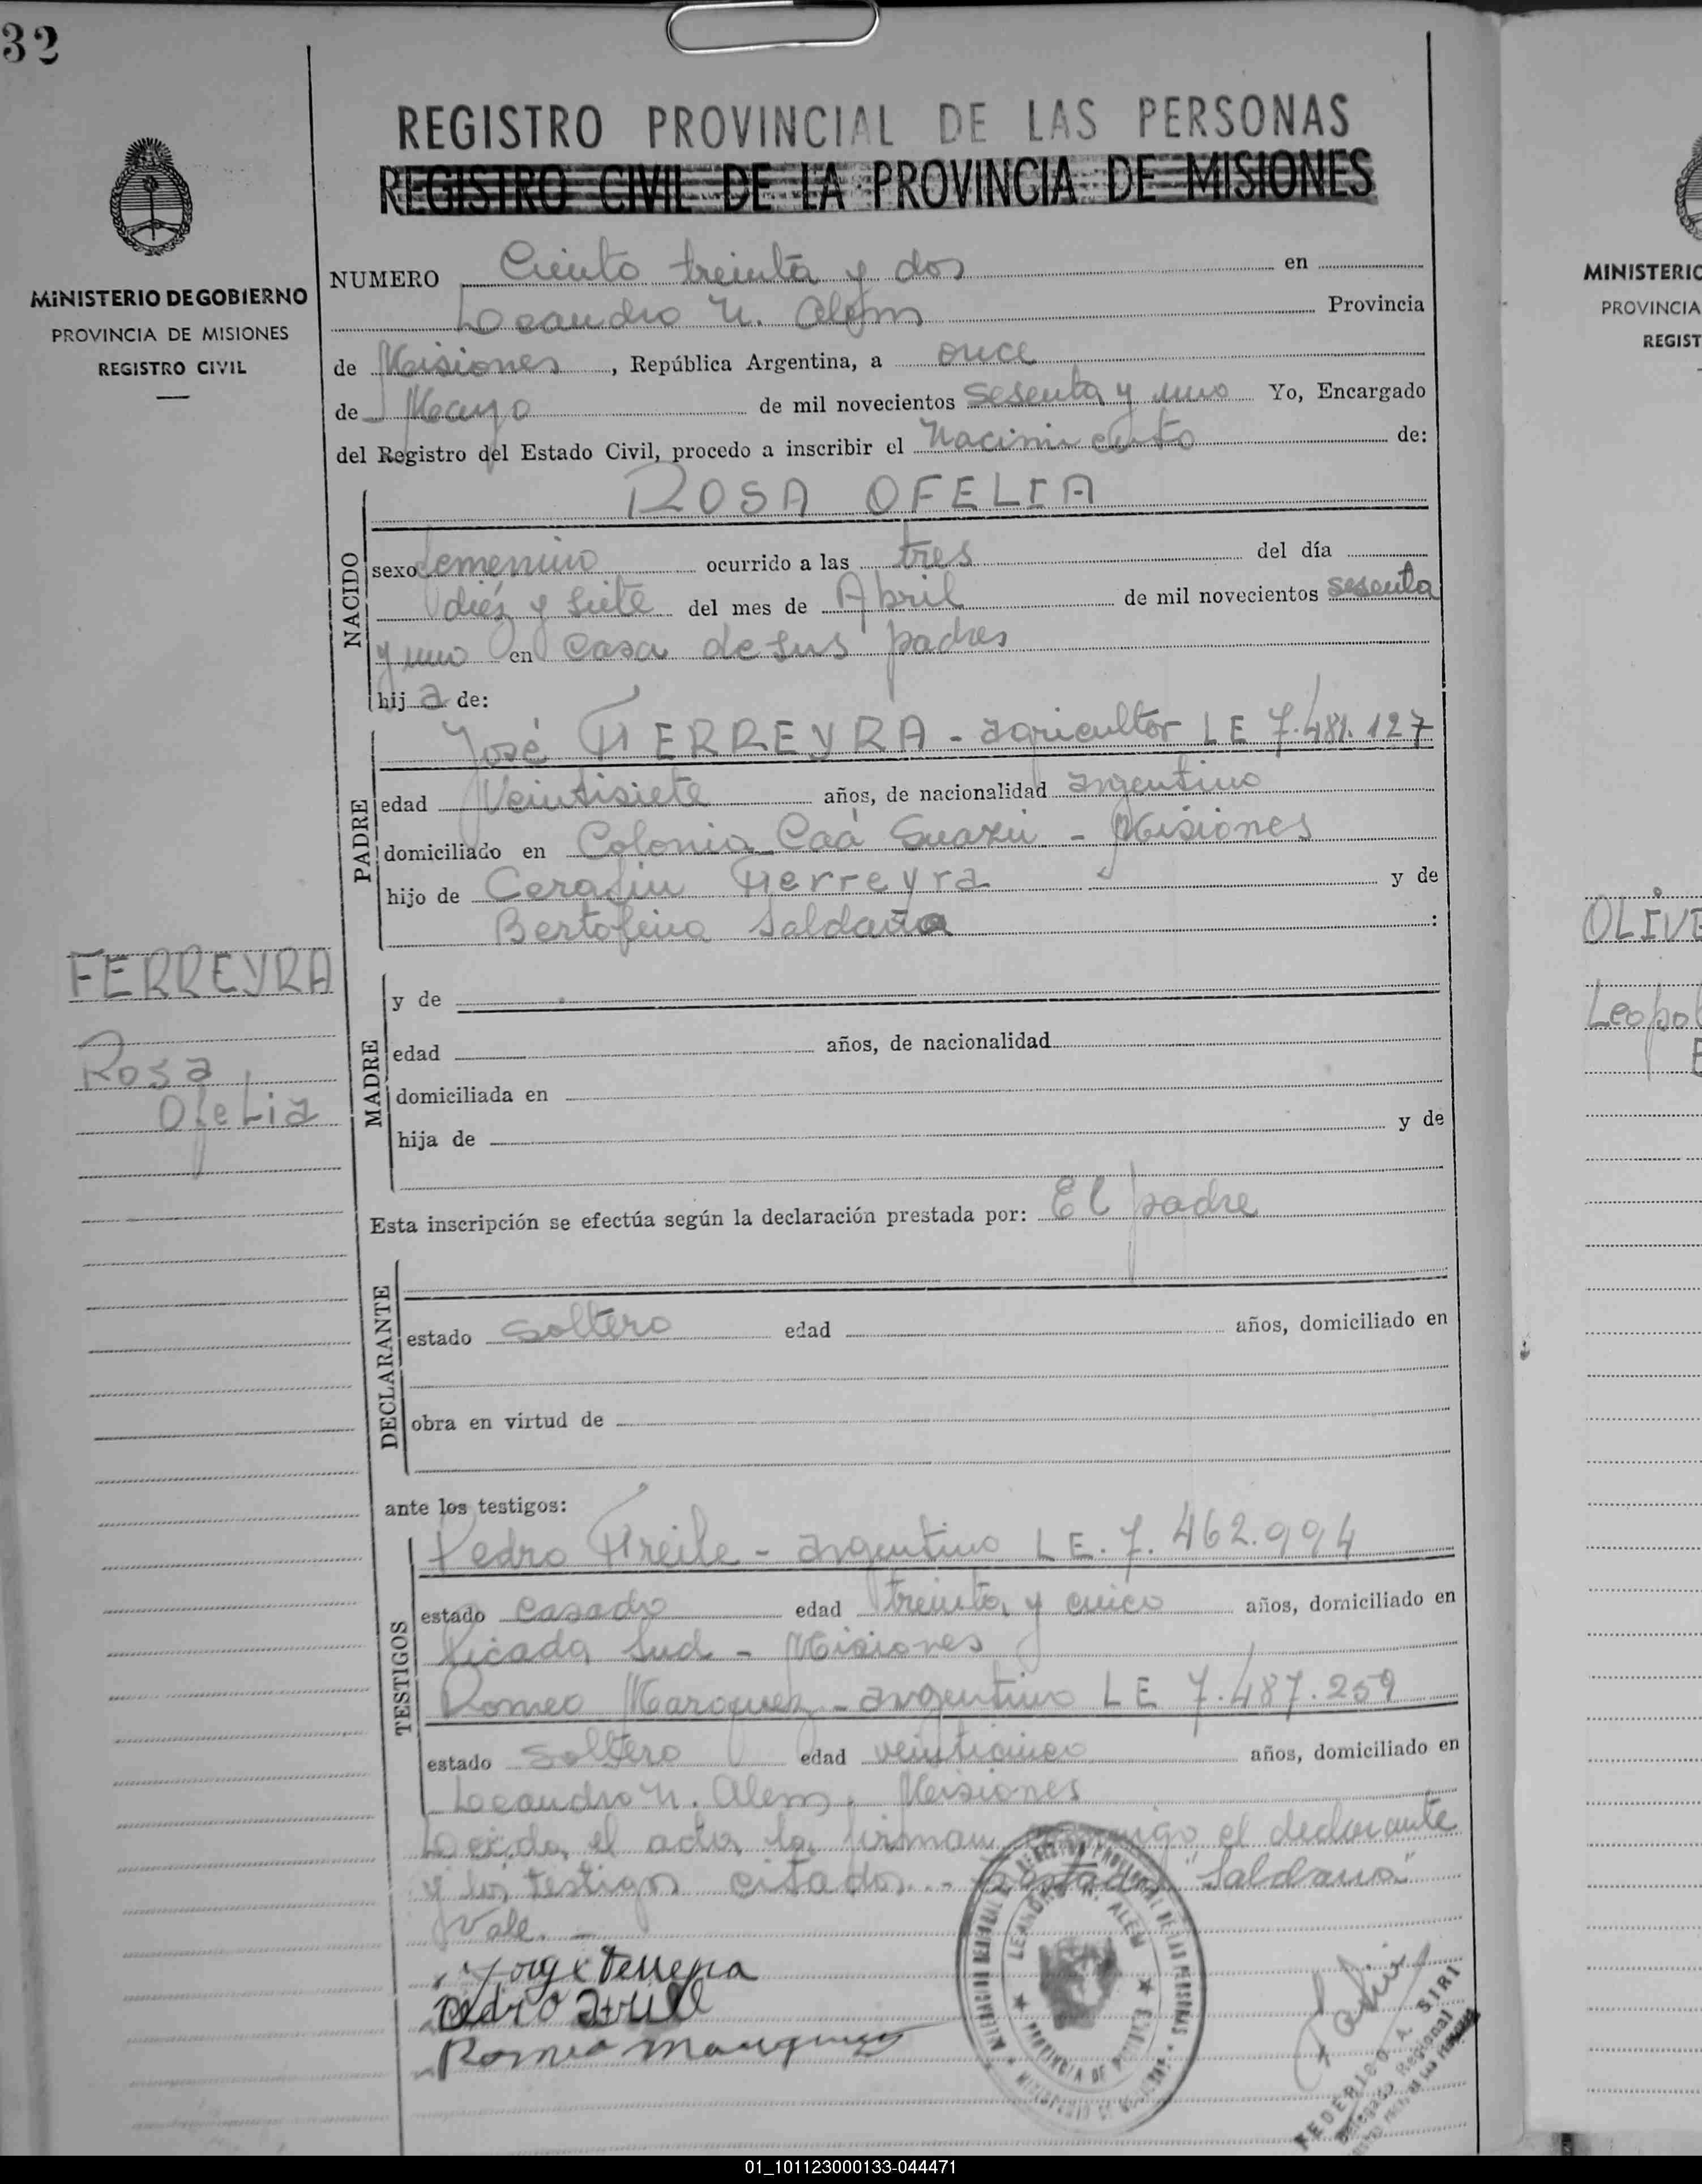 32
REGISTRO PROVINCIAL DE LAS PERSONAS
REGISTRO CIVIL DE LA PROVINCIA DE MISIONES
MINISTERIO DE GOBIERNO
PROVINCIA DE MISIONES
REGISTRO CIVIL
NUMERO Ciento treinta y dos en
Leandro N. Alem Provincia
de Misiones, República Argentina, a once
de Mayo de mil novecientos sesenta y uno Yo, Encargado
del Registro del Estado Civil, procedo a inscribir el Nacimiento de:
NACIDO
ROSA OFELIA
sexo femenino ocurrido a las tres del día
diez y siete del mes de Abril de mil novecientos sesenta
y uno en casa de sus padres
hij a de:
PADRE
José FERREYRA - agricultor LE 7.481.127
edad Veintisiete años, de nacionalidad argentino
domiciliado en Colonia Caá Guazú - Misiones
hijo de Cerafin Ferreyra y de
Bertolina Saldaña :
FERREYRA
Rosa
Ofelia
MADRE
y de
edad años, de nacionalidad
domiciliada en
hija de y de
Esta inscripción se efectúa según la declaración prestada por: El padre
DECLARANTE
estado soltero edad años, domiciliado en
obra en virtud de
ante los testigos:
TESTIGOS
Pedro Freile - argentino LE. 7.462.994
estado casado edad treinta y cinco años, domiciliado en
Picada Sud - Misiones
Romeo Marquez - argentino LE 7.487.259
estado soltero edad veinticinco años, domiciliado en
Leandro N. Alem, Misiones
Leida el acta, la firman conmigo el declarante
y los testigos citados.- "Saldaña"
Vale.-
Romeo Marquez
LEANDRO N. ALEM
PROVINCIA DE MISIONES
FEDERICO A. SIRI
Delegado Regional
MINISTERIO
PROVINCIA
REGIST
OLIVE
Leopol
E
01_101123000133-044471